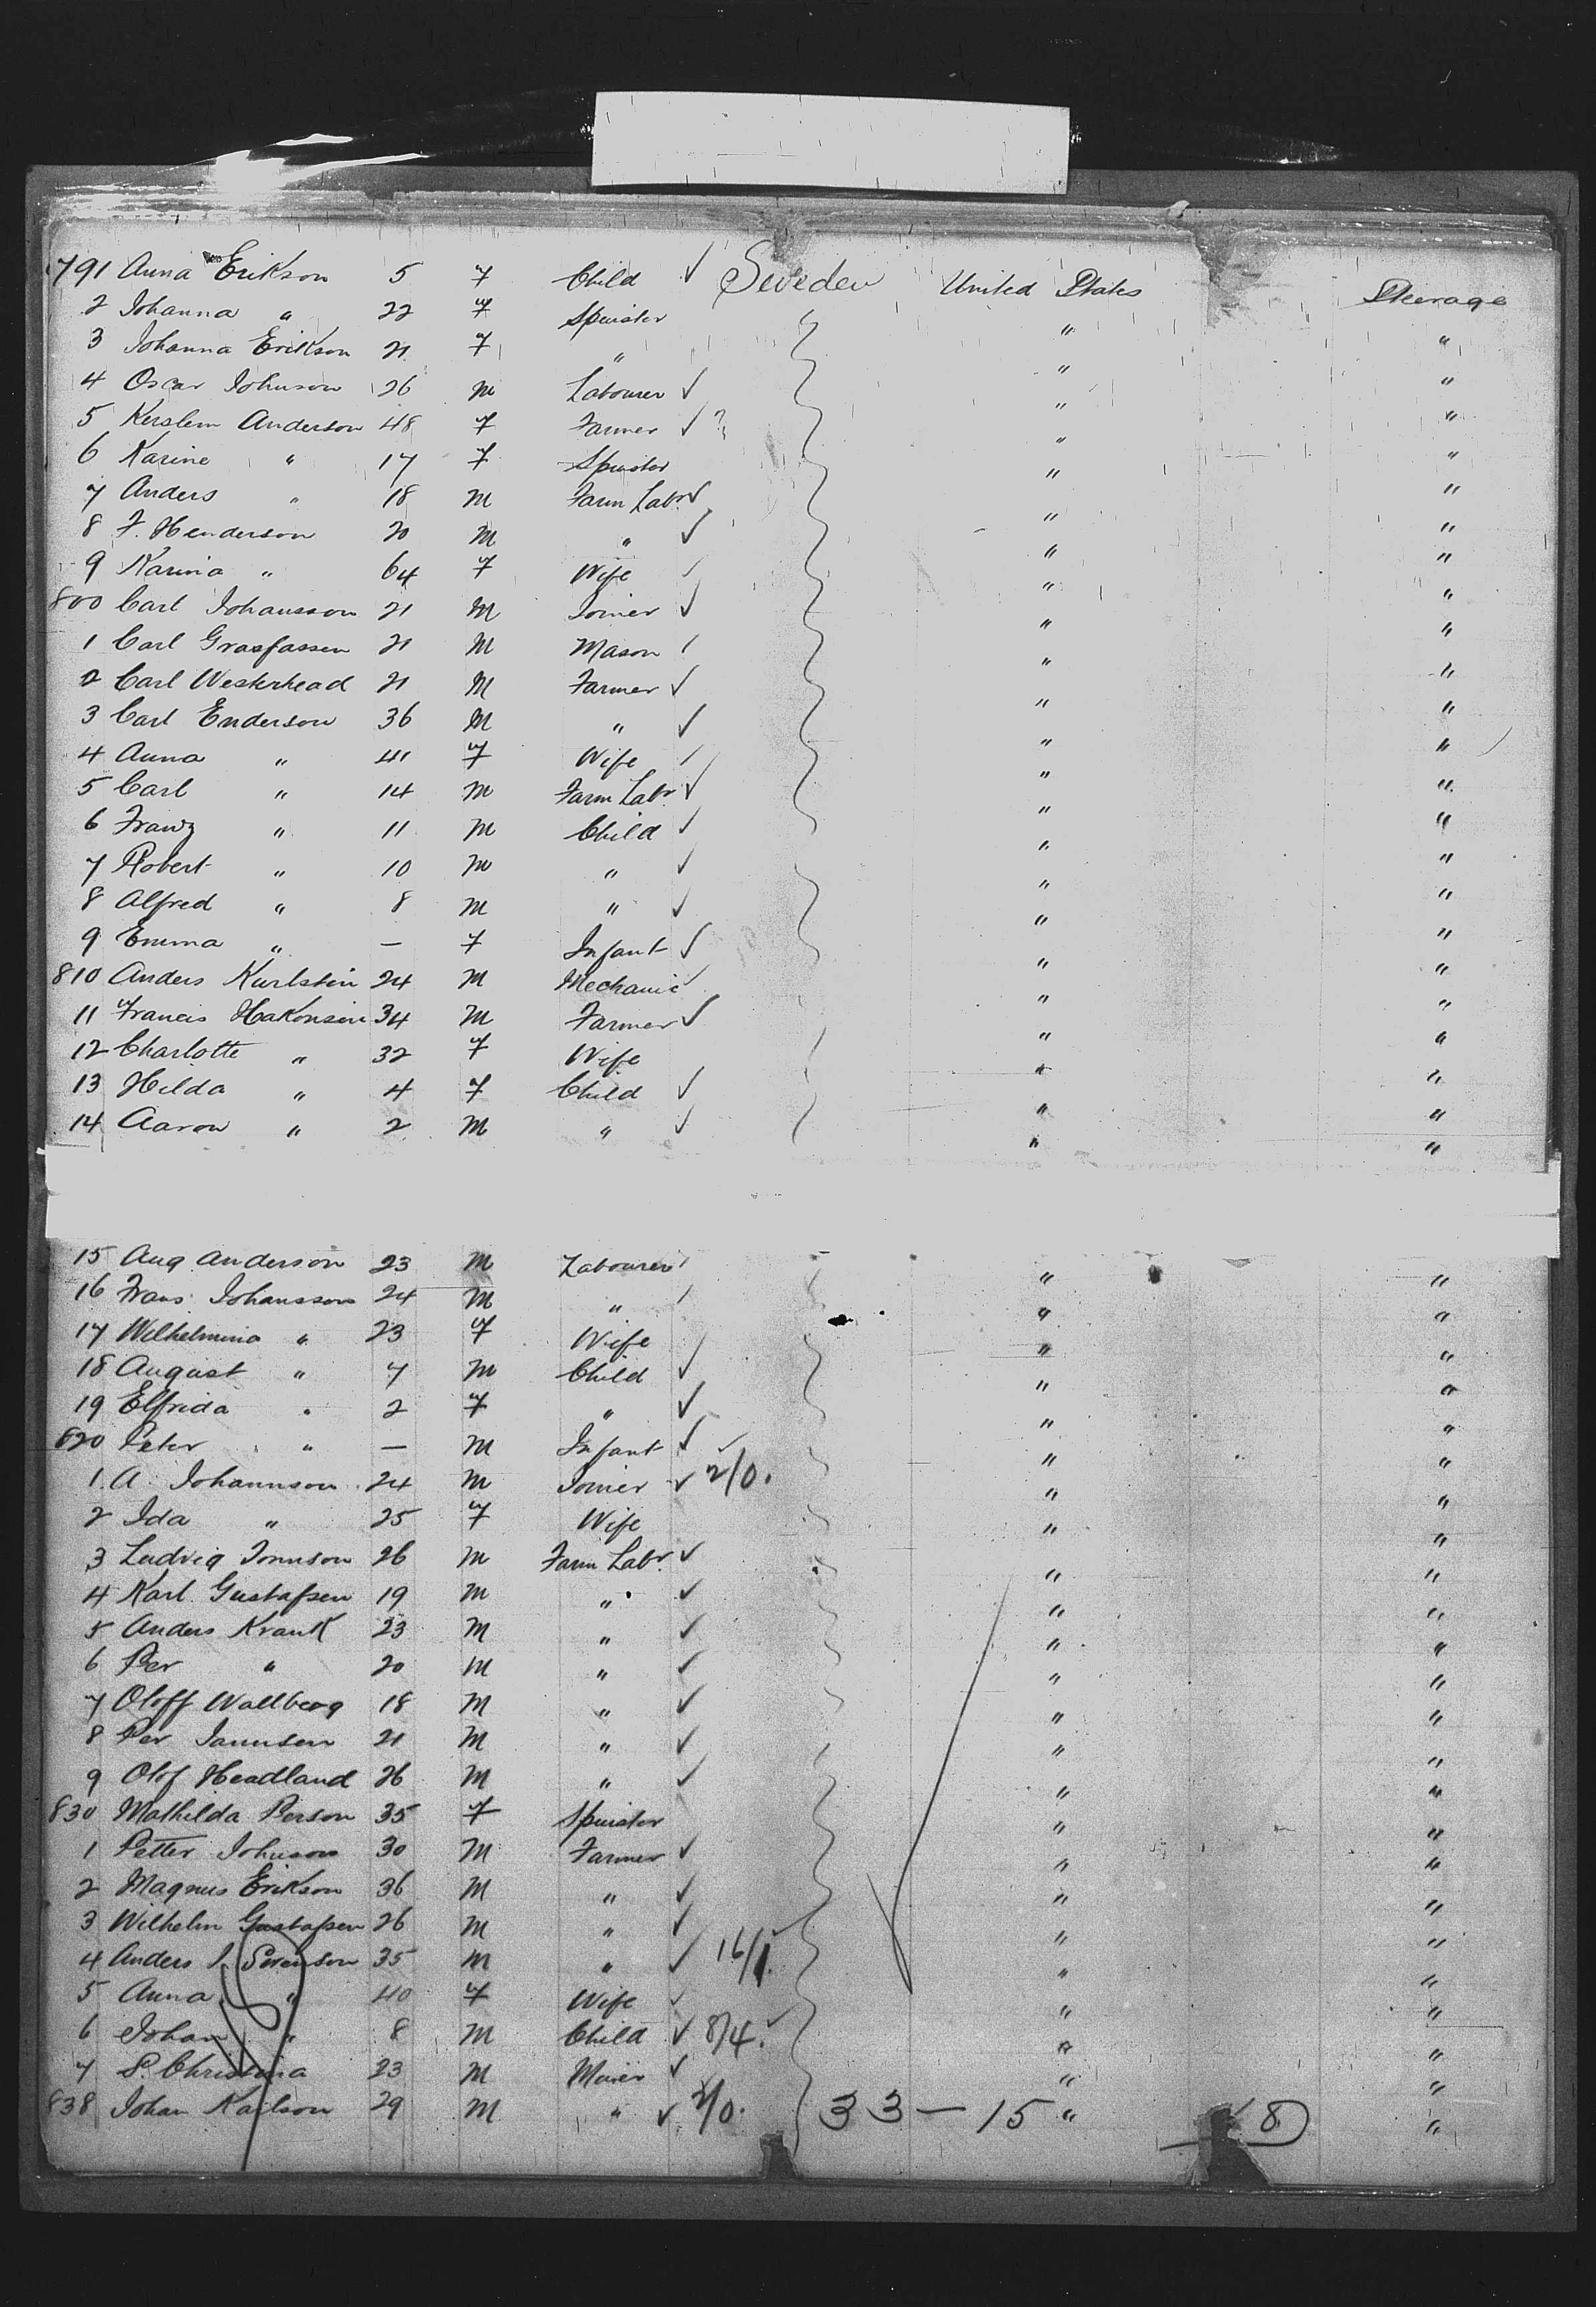 791 Anna Erikson 5 F Child ✓ Sweden United States Steerage
2 Johanna " 22 F Spinster " "
3 Johanna Erikson 21 F " " "
4 Oscar Johnson 26 M Labourer ✓ " "
5 Anderson 48 F Farmer ✓ ? " "
6 Karine " 17 F Spinster " "
7 Anders " 18 M Farm Labr ✓ " "
8 F. Henderson 20 M " ✓ " "
9 Karina " 64 F Wife ✓ " "
800 Carl Johansson 21 M Joiner ✓ " "
1 Carl 21 M Mason ✓ " "
2 Carl Westerhead 21 M Farmer ✓ " "
3 Carl Enderson 36 M " ✓ " "
4 Anna " 41 F Wife ✓ " "
5 Carl " 14 M Farm Labr ✓ " "
6 Franz " 11 M Child ✓ " "
7 Robert " 10 M " ✓ " "
8 Alfred " 8 M " ✓ " "
9 Emma " — F Infant ✓ " "
810 Anders Karlstin 24 M Mechanic ✓ " "
11 Francis Hakonsen 34 M Farmer ✓ " "
12 Charlotte " 32 F Wife " "
13 Hilda " 4 F Child ✓ " "
14 Aaron " 2 M " ✓ " "
15 Aug Anderson 23 M Labourer ✓ " "
16 Frans Johansson 24 M " ✓ " "
17 Wilhelmina " 23 F Wife " "
18 August " 7 M Child ✓ " "
19 Elfrida " 2 F " ✓ " "
820 Peter " — M Infant ✓ " "
1 A. Johannson 24 M Joiner ✓ 2/0. " "
2 Ida " 25 F Wife " "
3 Ludvig Jonnson 26 M Farm Labr. ✓ " "
4 Karl Gustafsen 19 M " ✓ " "
5 Anders Krank 23 M " ✓ " "
6 Per " 20 M " ✓ " "
7 Oloff Wallberg 18 M " ✓ " "
8 Per Jannsen 21 M " ✓ " "
9 Olof Headland 26 M " ✓ " "
830 Mathilda Person 35 F Spinster " "
1 Petter Johnson 30 M Farmer ✓ " "
2 Magnus Erikson 36 M " ✓ " "
3 Wilhelm Gustafsen 26 M " ✓ " "
4 Anders J. Svenson 35 M " ✓ 16/1. " "
5 Anna " 40 F Wife ✓ " "
6 Johan " 8 M Child ✓ 8/4. " "
7 P. Christina 23 M ✓ " "
838 Johan Karlson 29 M " ✓ 2/0. 33 — 15 " 8 "